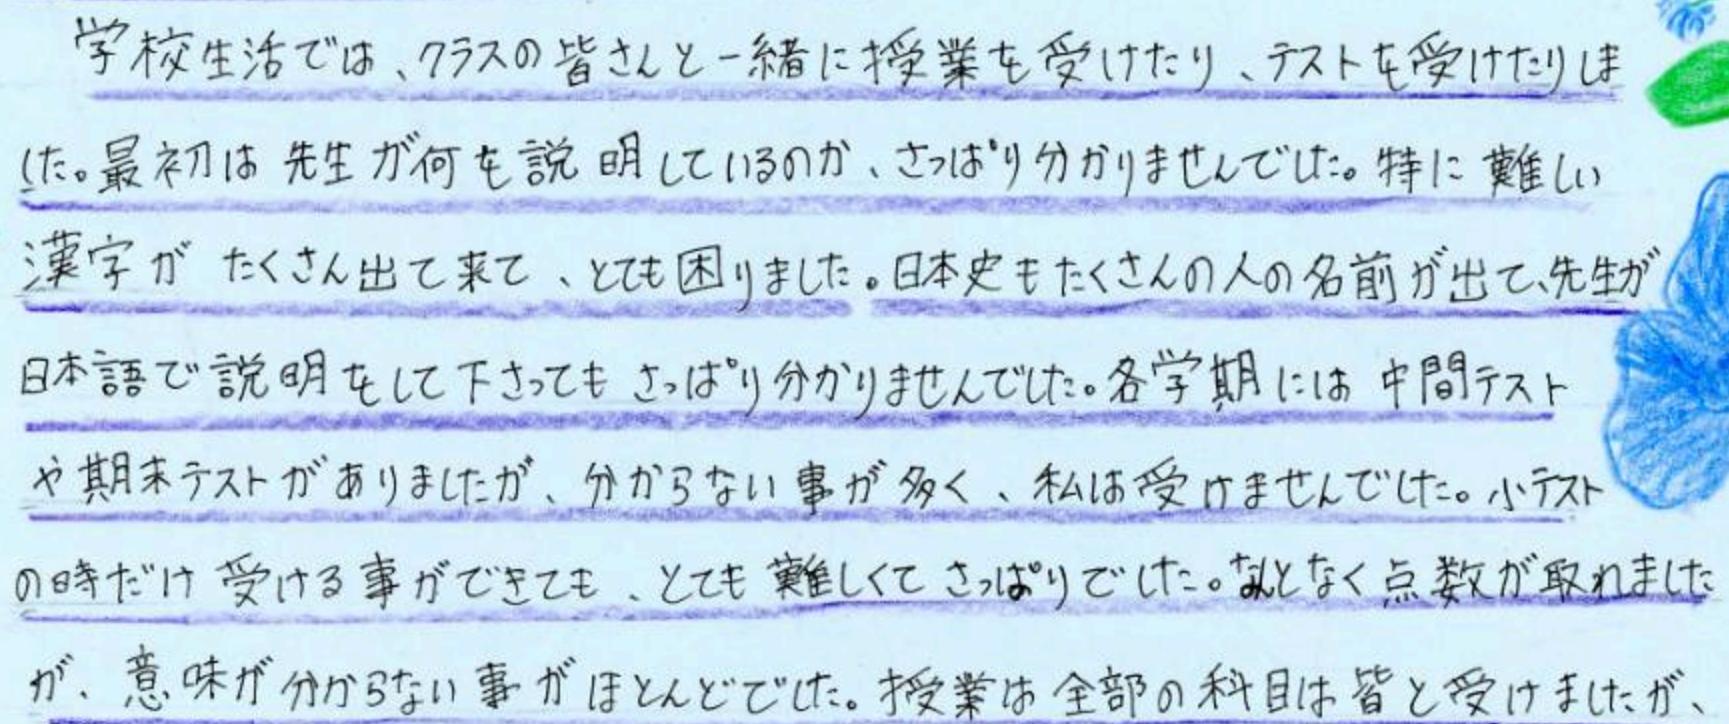 学校生活では、クラスの皆さんと一緒に授業を受けたり、テストを受けたりしま
した。最初は先生が何を説明しているのか、さっぱり分かりませんでした。特に難しい
漢字がたくさん出て来て、とても困りました。日本史もたくさんの人の名前が出て、先生が
日本語で説明をして下さってもさっぱり分かりませんでした。各学期には中間テスト
や期末テストがありましたが、分からない事が多く、私は受けませんでした。小テスト
の時だけ受ける事ができても、とても難しくてさっぱりでした。なんとなく点数が取れました
が、意味が分からない事がほとんどでした。授業は全部の科目は皆と受けましたが、